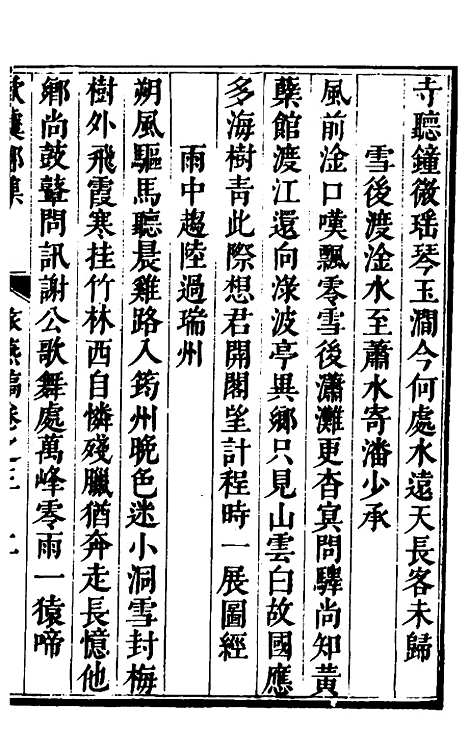 寺聽鐘微瑤琴玉澗今何處水遠天長客未歸
雪後渡淦水至蕭水寄潘少承
風前淦口嘆飄零雪後瀟灘更杳冥問驛尚知黃
蘗館渡江還向淥波亭異鄉只見山雲白故國應
多海樹青此際想君開閣望計程時一展圖經
雨中趨陸過瑞州
朔風驅馬聽晨雞路入筠州晚色迷小洞雪封梅
樹外飛霞寒挂竹林西自憐殘臘猶奔走長憶他
鄉尚鼓鼙問訊謝公歌舞處萬峰零雨一猿啼
集
燕稿卷之三